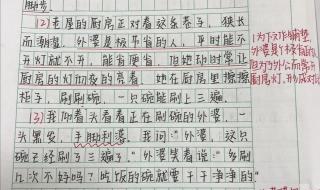 脚步
(12)老屋的厨房正对着这条巷子，狭长
而潮湿。外婆是极节省的人，平时能不
开灯就不开，能省便省，但她却时常让
厨房的灯彻夜的亮着。她在厨房里擦擦
柜子，刷刷碗，一只碗能刷上三遍。
(3)我仰着头看着正在刷碗的外婆，一
头黑发，手脚利落。我问："外婆，这只
碗已经刷了三遍了。"外婆笑着说："多刷
几次不好吗？吃饭的碗就要干干净净的"
为下文作铺垫
外婆是个极节省
但为了外公而常开
厨房灯，形成对比